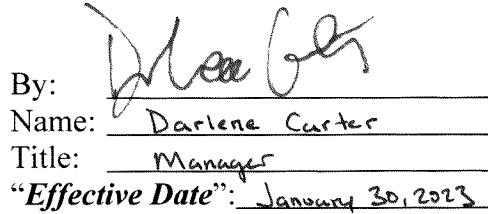 By:
Name: Darlene Carter
Title: Manager
“Effective Date”: January 30, 2023